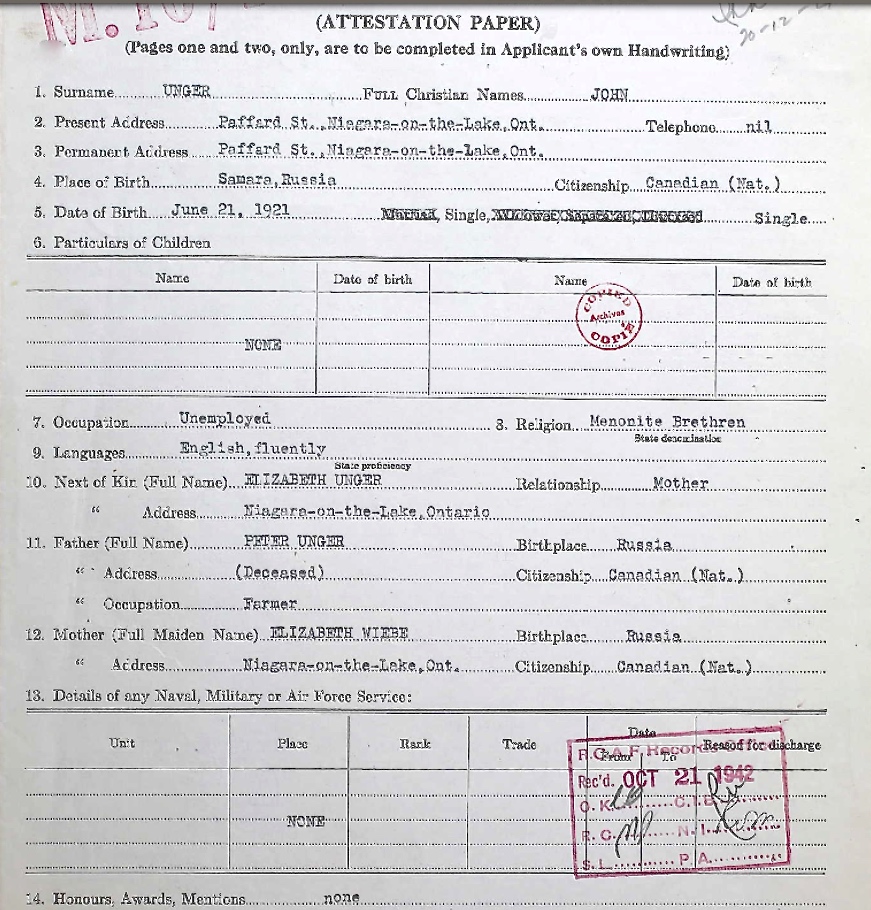 20-12-
(ATTESTATION PAPER)
(Pages one and two, only, are to be completed in Applicant's own Handwriting)
1. Surname UNGER FULL Christian Names JOHN
2. Present Address Paffard St.,Niagara-on-the-Lake,Ont. Telephone nil
3. Permanent Address Paffard St.,Niagara-on-the-Lake,Ont.
4. Place of Birth Samara,Russia Citizenship Canadian (Nat.)
5. Date of Birth June 21, 1921 Married, Single, Widower, Separated, Divorced Single
6. Particulars of Children
Name Date of birth Name Date of birth
COPIED
Archives
COPIE
NONE
7. Occupation Unemployed 8. Religion Menonite Brethren
State denomination
9. Languages English,fluently
State proficiency
10. Next of Kin (Full Name) ELIZABETH UNGER Relationship Mother
“ Address Niagara-on-the-Lake,Ontario
11. Father (Full Name) PETER UNGER Birthplace Russia
“ Address (Deceased) Citizenship Canadian (Nat.)
“ Occupation Farmer
12. Mother (Full Maiden Name) ELIZABETH WIEBE Birthplace Russia
“ Address Niagara-on-the-Lake,Ont. Citizenship Canadian (Nat.)
13. Details of any Naval, Military or Air Force Service:
Unit Place Rank Trade Date Reason for discharge
From To
R.C.A.F. Records Office
Rec'd. OCT 21 1942
O.K. C.I.
NONE
R.C. N.I.
S.L. P.A.
14. Honours, Awards, Mentions none